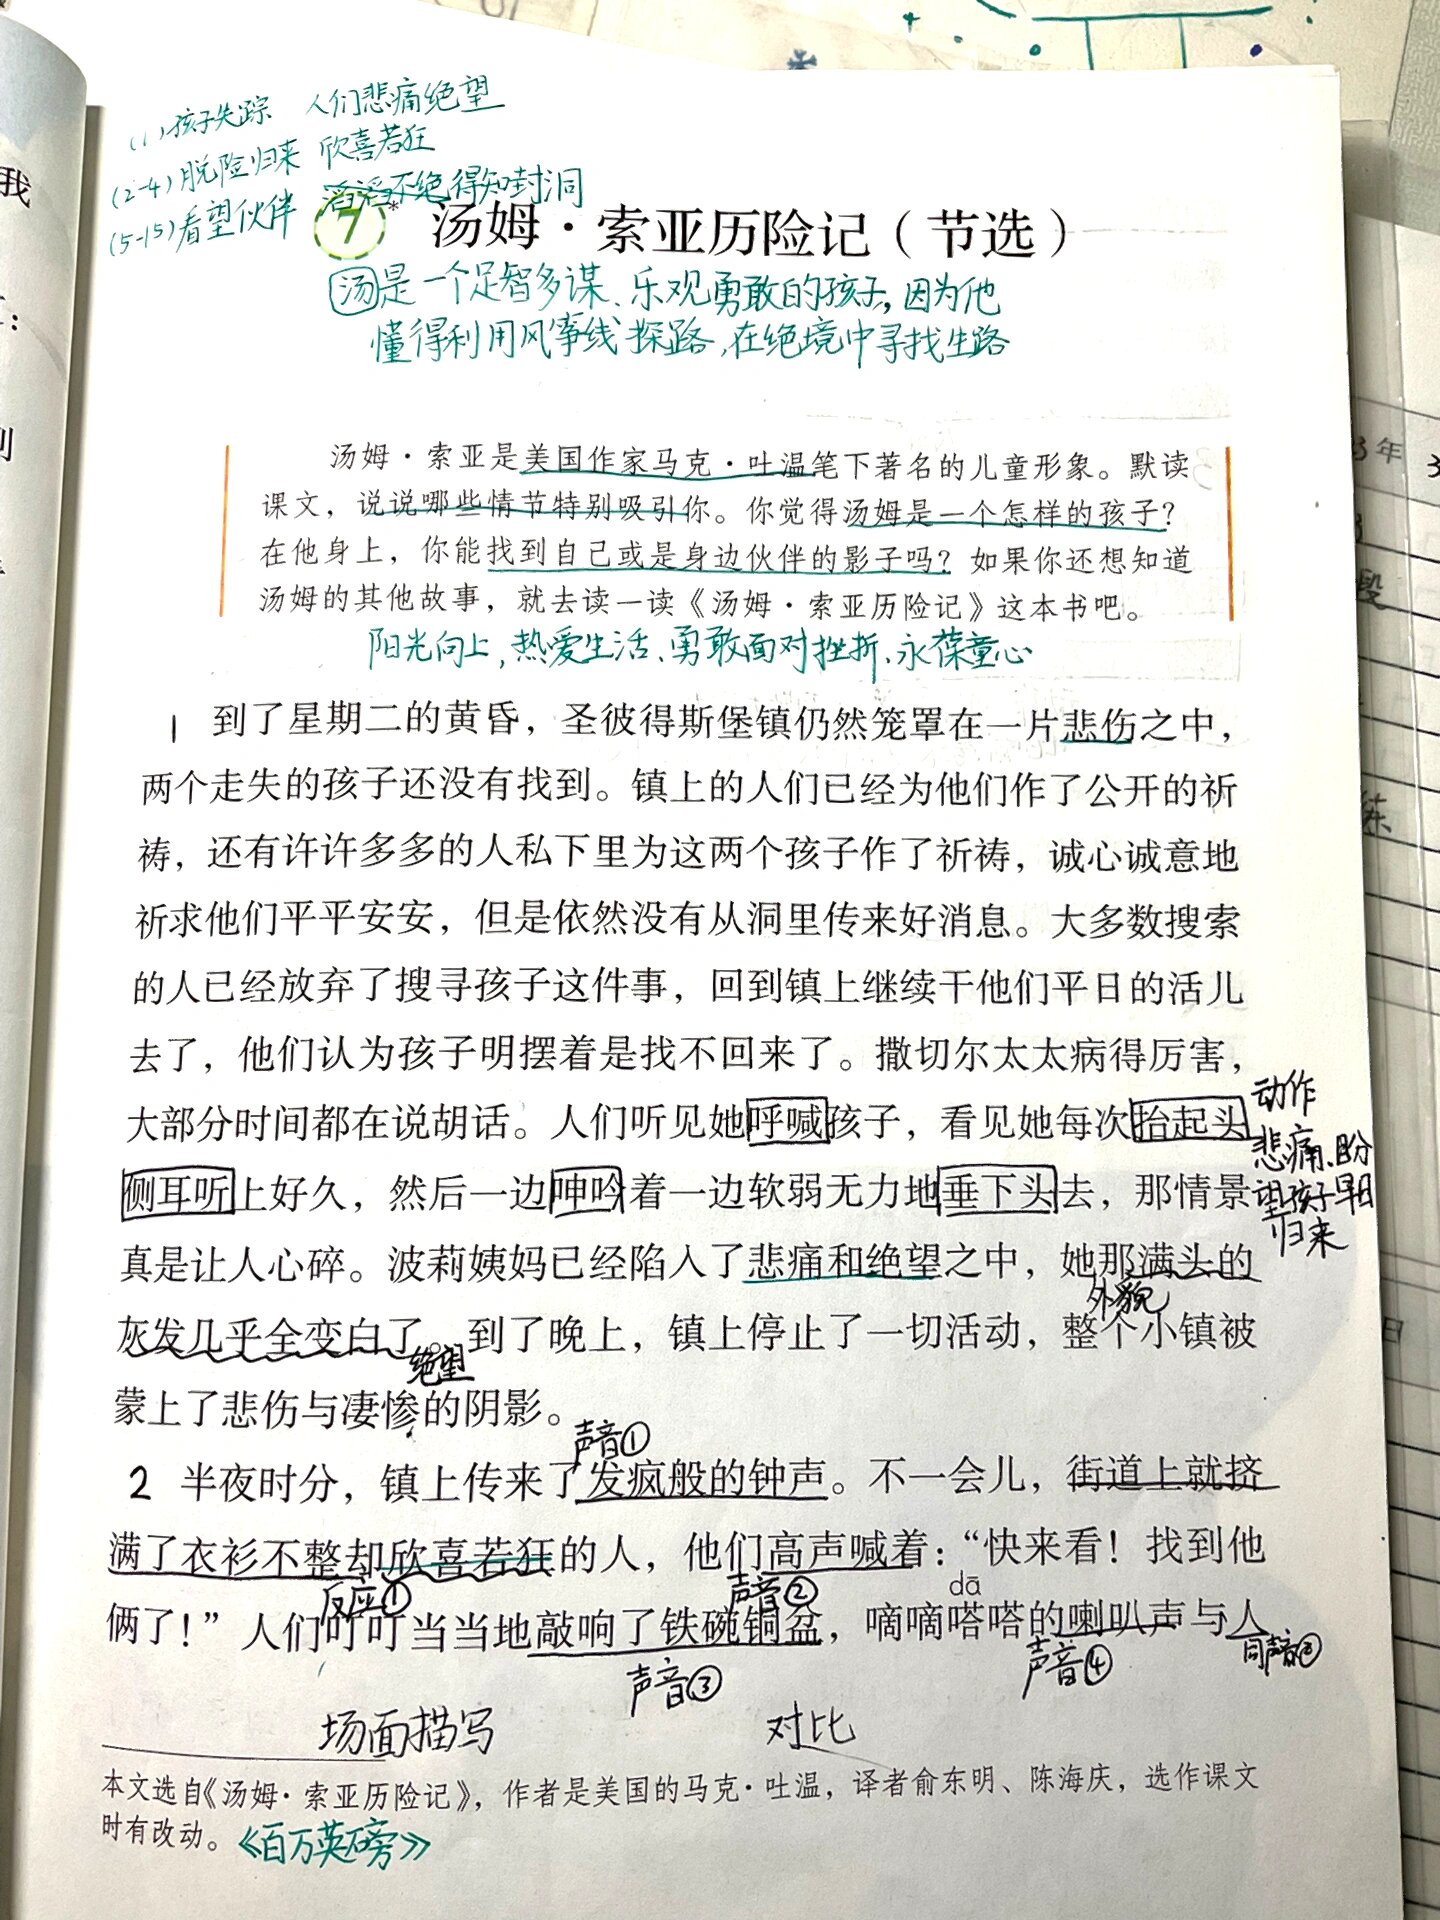 (1)孩子失踪 人们悲痛绝望
(2-4)脱险归来 欣喜若狂
(5-15)看望伙伴 滔滔不绝得知封洞
7* 汤姆·索亚历险记（节选）
汤是一个足智多谋、乐观勇敢的孩子,因为他
懂得利用风筝线探路,在绝境中寻找生路
汤姆·索亚是美国作家马克·吐温笔下著名的儿童形象。默读
课文，说说哪些情节特别吸引你。你觉得汤姆是一个怎样的孩子？
在他身上，你能找到自己或是身边伙伴的影子吗？如果你还想知道
汤姆的其他故事，就去读一读《汤姆·索亚历险记》这本书吧。
阳光向上,热爱生活、勇敢面对挫折、永葆童心
1 到了星期二的黄昏，圣彼得斯堡镇仍然笼罩在一片悲伤之中，
两个走失的孩子还没有找到。镇上的人们已经为他们作了公开的祈
祷，还有许许多多的人私下里为这两个孩子作了祈祷，诚心诚意地
祈求他们平平安安，但是依然没有从洞里传来好消息。大多数搜索
的人已经放弃了搜寻孩子这件事，回到镇上继续干他们平日的活儿
去了，他们认为孩子明摆着是找不回来了。撒切尔太太病得厉害，
大部分时间都在说胡话。人们听见她呼喊孩子，看见她每次抬起头
动作
悲痛、盼
望孩子早日
归来
侧耳听上好久，然后一边呻吟着一边软弱无力地垂下头去，那情景
真是让人心碎。波莉姨妈已经陷入了悲痛和绝望之中，她那满头的
外貌
灰发几乎全变白了。到了晚上，镇上停止了一切活动，整个小镇被
绝望
蒙上了悲伤与凄惨的阴影。
声音①
2 半夜时分，镇上传来了发疯般的钟声。不一会儿，街道上就挤
满了衣衫不整却欣喜若狂的人，他们高声喊着：“快来看！找到他
反应① 声音② dā
俩了！”人们叮叮当当地敲响了铁碗铜盆，嘀嘀嗒嗒的喇叭声与人
声音③ 声音④
场面描写 对比
本文选自《汤姆·索亚历险记》，作者是美国的马克·吐温，译者俞东明、陈海庆，选作课文
时有改动。《百万英磅》